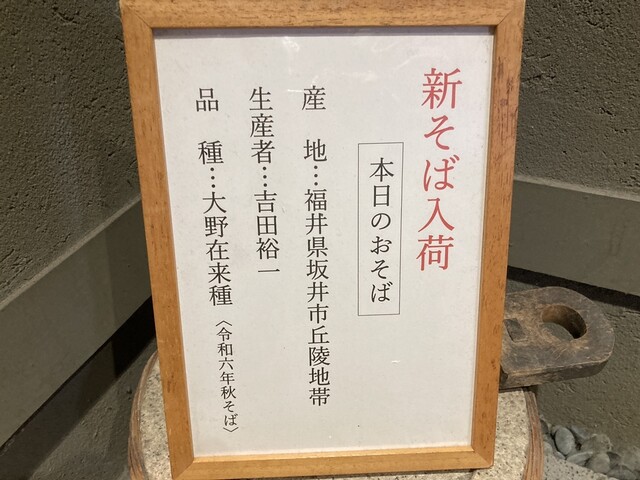 新そば入荷
本日のおそば
産 地…福井県坂井市丘陵地帯
生産者…吉田裕一
品 種…大野在来種〈令和六年秋そば〉